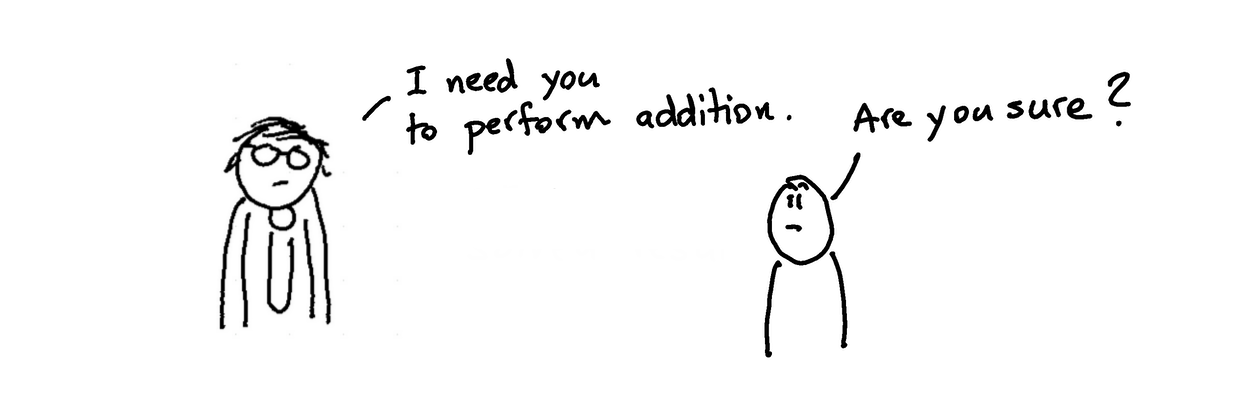 I need you
to perform addition.
Are you sure?